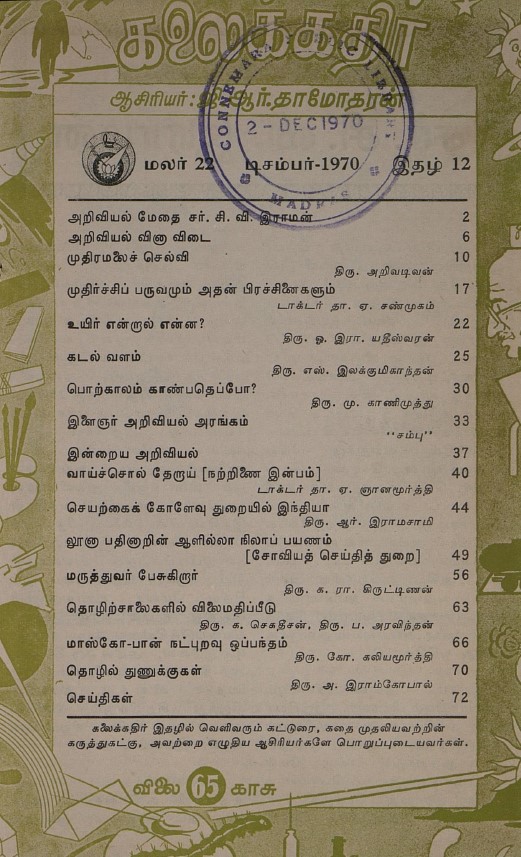 கலைக்கதிர்
ஆசிரியர்: ஜி. ஆர். தாமோதரன்
CONNEMARA PUBLIC LIBRARY
2 - DEC 1970
MADRAS
மலர் 22 டிசம்பர்-1970 இதழ் 12
அறிவியல் மேதை சர். சி. வி. இராமன் 2
அறிவியல் வினா விடை 6
முதிரமலைச் செல்வி 10
திரு. அறிவடிவன்
முதிர்ச்சிப் பருவமும் அதன் பிரச்சினைகளும் 17
டாக்டர் தா. ஏ. சண்முகம்
உயிர் என்றால் என்ன? 22
திரு. ஓ. இரா. யதீஸ்வரன்
கடல் வளம் 25
திரு. எஸ். இலக்குமிகாந்தன்
பொற்காலம் காண்பதெப்போ? 30
திரு. மு. காணிமுத்து
இளைஞர் அறிவியல் அரங்கம் 33
"சம்பு"
இன்றைய அறிவியல் 37
வாய்ச்சொல் தேறாய் [நற்றிணை இன்பம்] 40
டாக்டர் தா. ஏ. ஞானமூர்த்தி
செயற்கைக் கோளேவு துறையில் இந்தியா 44
திரு. ஆர். இராமசாமி
லூனா பதினாறின் ஆளில்லா நிலாப் பயணம்
[சோவியத் செய்தித் துறை] 49
மருத்துவர் பேசுகிறார் 56
திரு. க. ரா. கிருட்டிணன்
தொழிற்சாலைகளில் விலைமதிப்பீடு 63
திரு. க. செகதீசன், திரு. ப. அரவிந்தன்
மாஸ்கோ-பான் நட்புறவு ஒப்பந்தம் 66
திரு. கோ. கலியமூர்த்தி
தொழில் துணுக்குகள் 70
திரு. அ. இராம்கோபால்
செய்திகள் 72
கலைக்கதிர் இதழில் வெளிவரும் கட்டுரை, கதை முதலியவற்றின்
கருத்துகட்கு, அவற்றை எழுதிய ஆசிரியர்களே பொறுப்புடையவர்கள்.
விலை 65 காசு